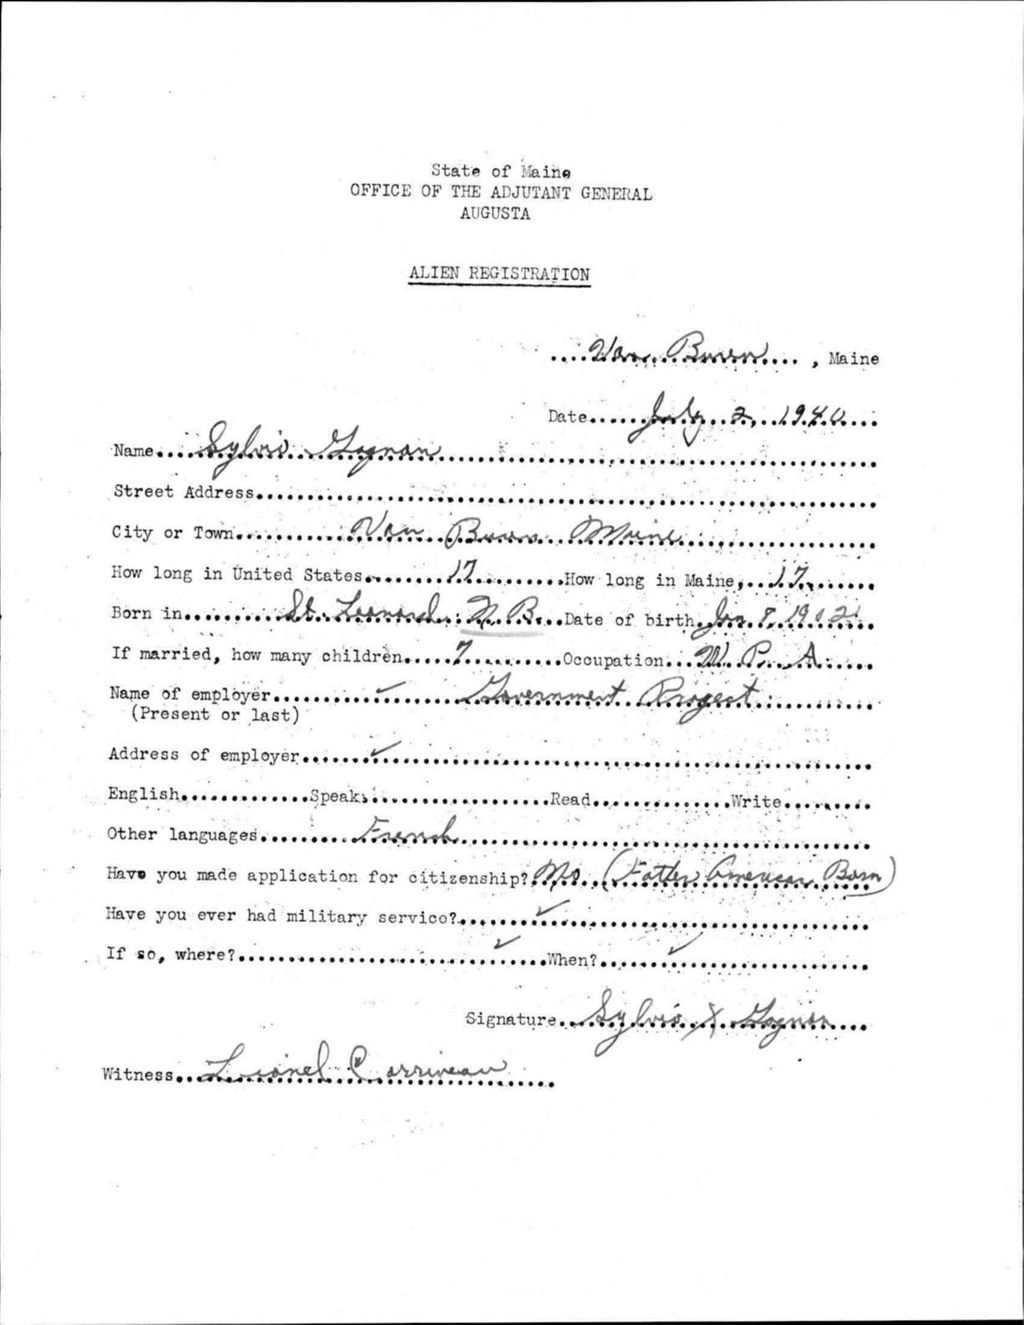 State of Maine
OFFICE OF THE ADJUTANT GENERAL
AUGUSTA
ALIEN REGISTRATION
Van Buren, Maine
Date July 2, 1940
Name Sylvio Gagnon
Street Address
City or Town Van Buren Maine
How long in United States 17 How long in Maine 17
Born in St. Leonard, N. B. Date of birth Jan. 8, 1902
If married, how many children 7 Occupation W. P. A.
Name of employer ✓ Government Project
(Present or last)
Address of employer ✓
English Speak Read Write
Other languages French
Have you made application for citizenship? No. (Father American Born)
Have you ever had military service? ✓
If so, where? ✓ When? ✓
Signature Sylvio X Gagnon
Witness Lionel Corriveau